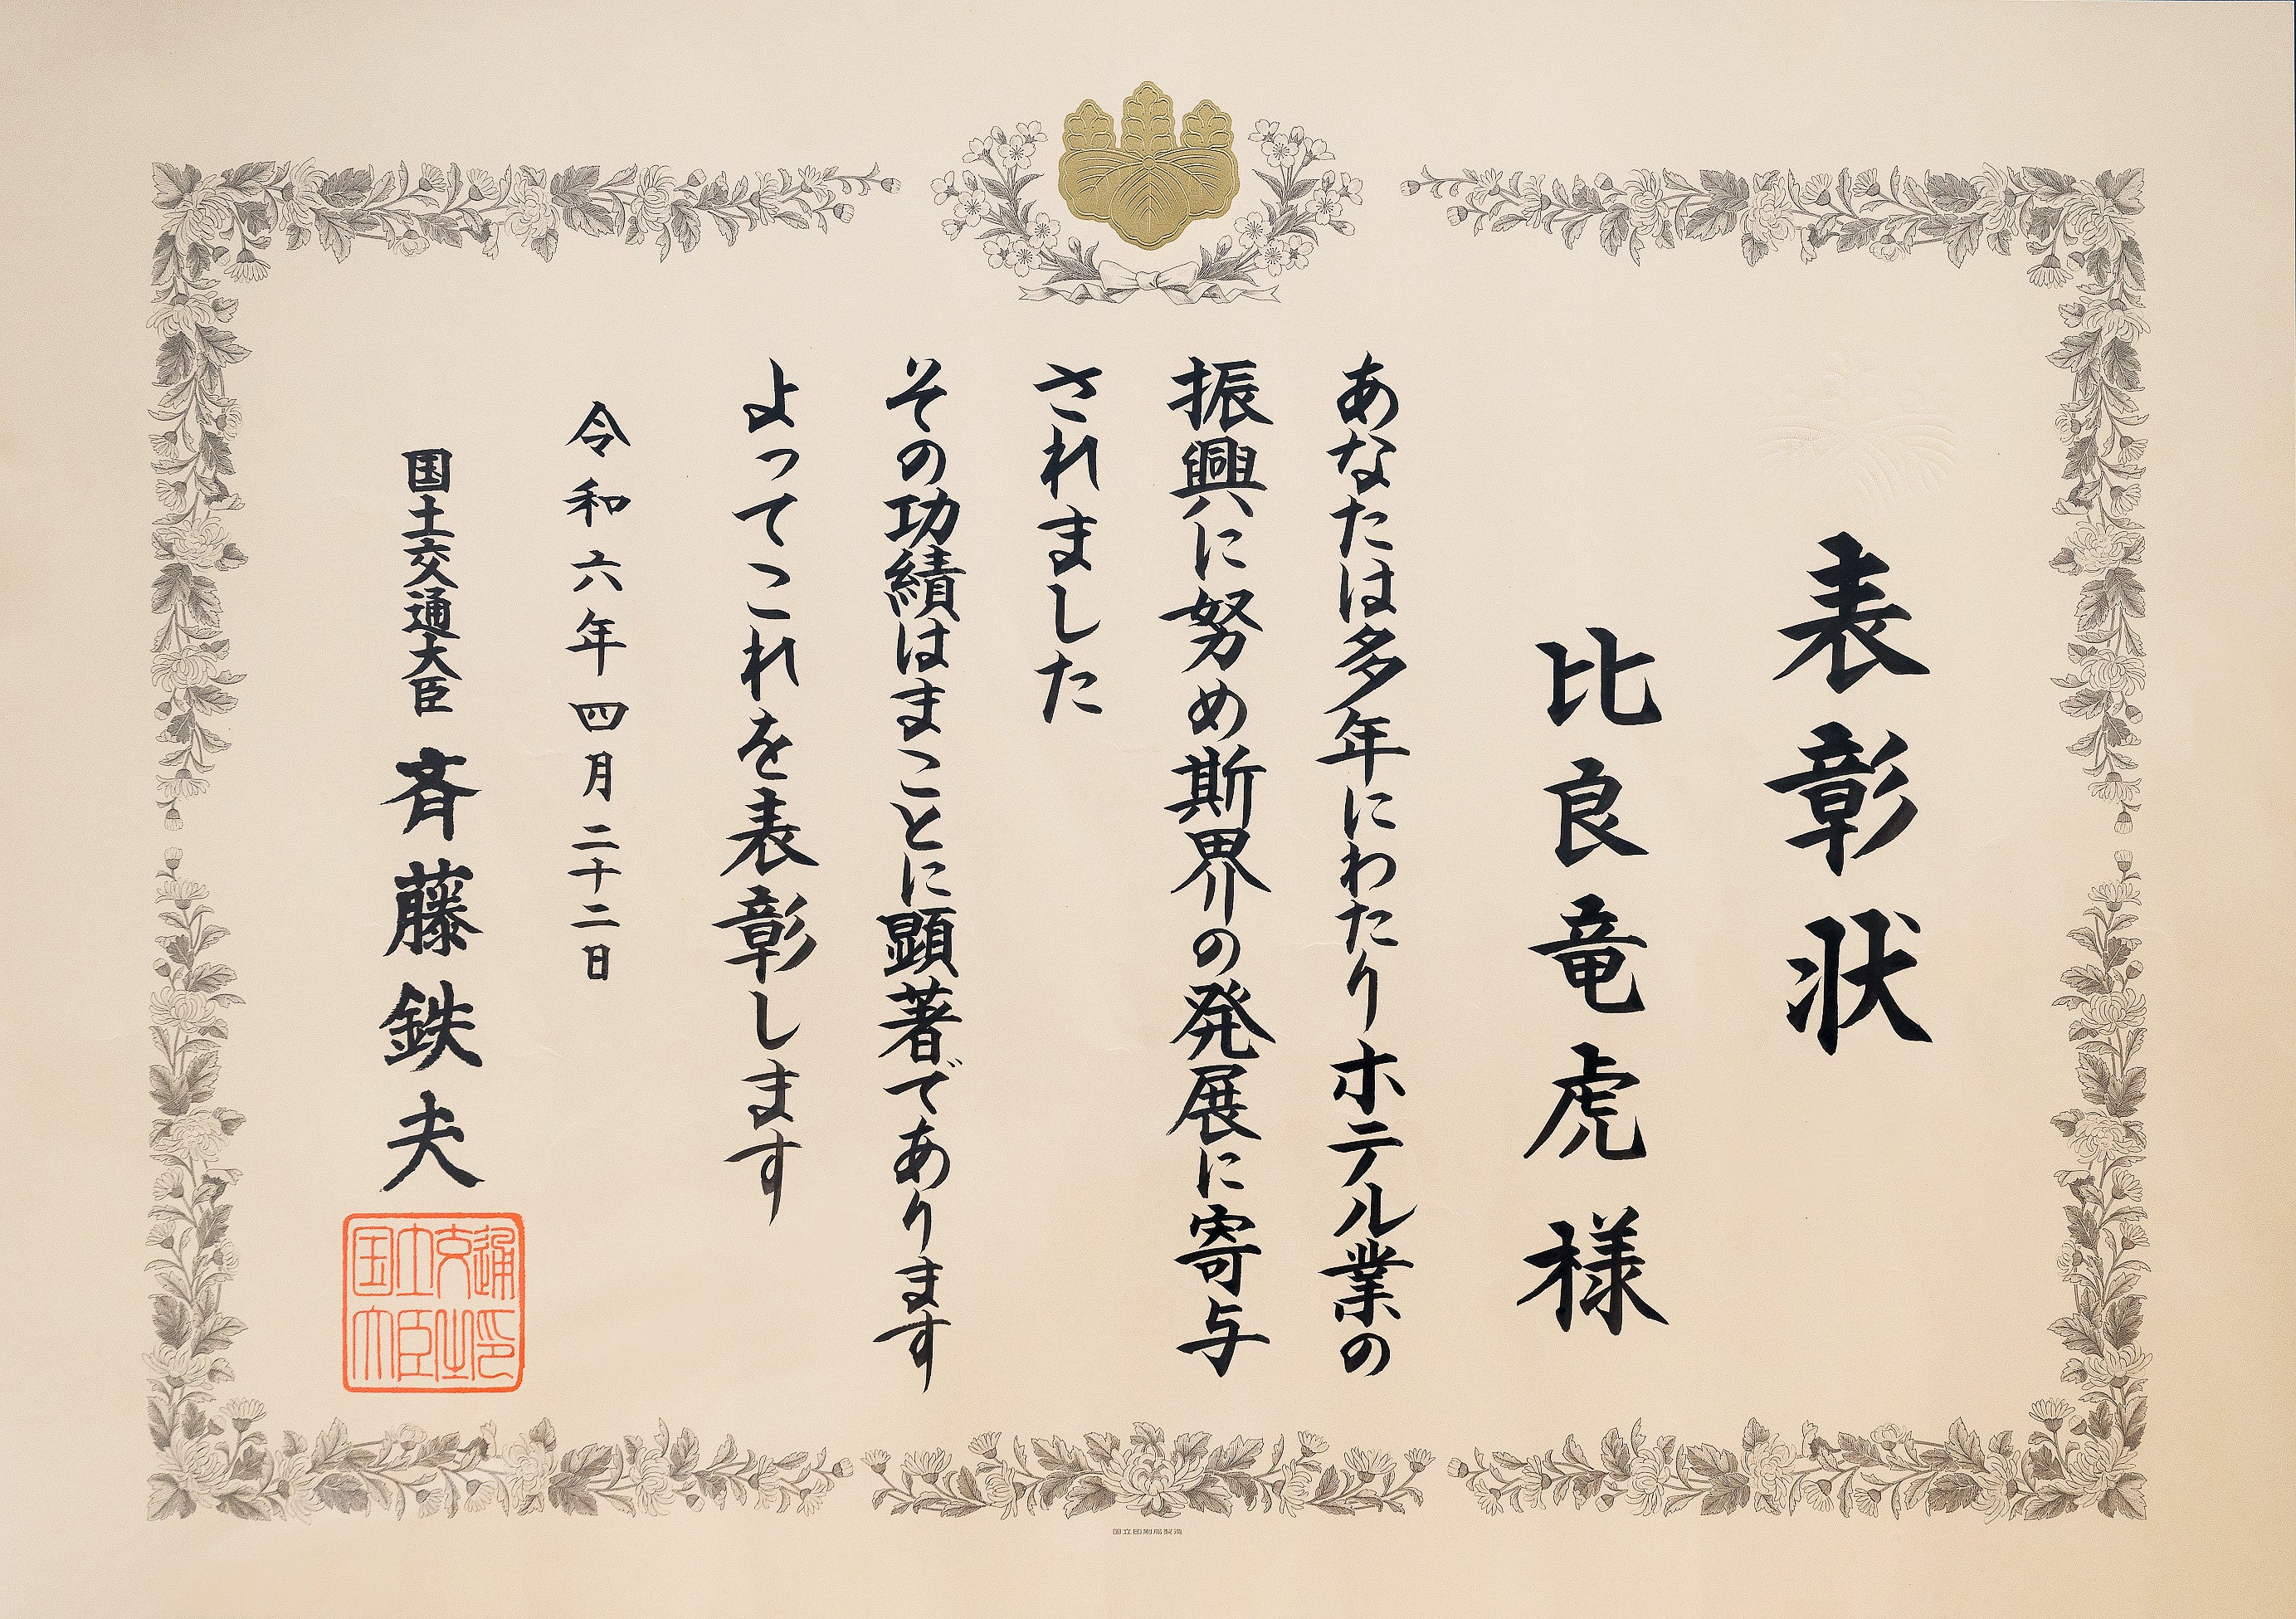 表彰状
比良竜虎様
あなたは多年にわたりホテル業の
振興に努め斯界の発展に寄与
されました
その功績はまことに顕著であります
よってこれを表彰します
令和六年四月二十二日
国土交通大臣 斉藤鉄夫
国土交通大臣之印
国立印刷局製造